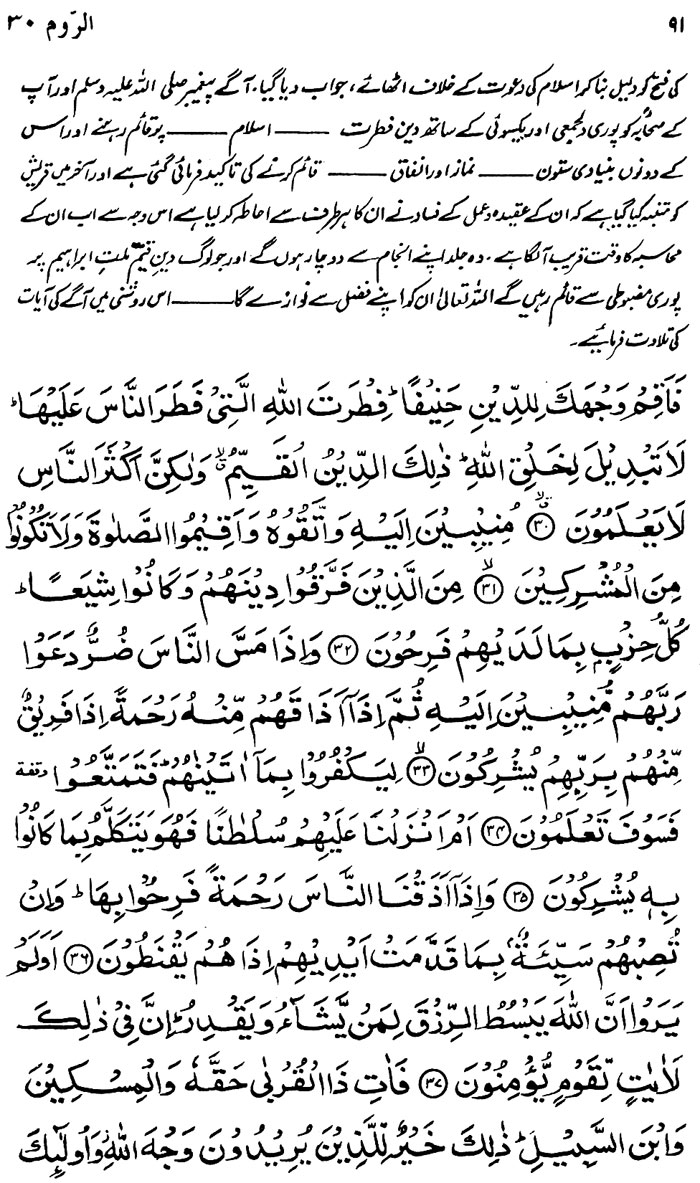 ۹۱ الرّوم ۳۰
کی فتح کو دلیل بنا کر اسلام کی دعوت کے خلاف اٹھائے، جواب دیا گیا۔ آگے پیغمبر صلی اللہ علیہ وسلم اور آپ
کے صحابہؓ کو پوری دلجمعی اور یکسوئی کے ساتھ دینِ فطرت ــــــ اسلام ــــــ پر قائم رہنے اور اس
کے دونوں بنیادی ستون ــــــ نماز اور انفاق ــــــ قائم کرنے کی تاکید فرمائی گئی ہے اور آخر میں قریش
کو تنبیہ کیا گیا ہے کہ ان کے عقیدہ و عمل کے فساد نے ان کا ہر طرف سے احاطہ کر لیا ہے اس وجہ سے اب ان کے
محاسبہ کا وقت قریب آ لگا ہے۔ وہ جلد اپنے انجام سے دوچار ہوں گے اور جو لوگ دینِ قیّم ملتِ ابراہیم پر
پوری مضبوطی سے قائم رہیں گے اللہ تعالیٰ ان کو اپنے فضل سے نوازے گا ــــــ اس روشنی میں آگے کی آیات
کی تلاوت فرمائیے۔
فَاَقِمْ وَجْهَكَ لِلدِّيْنِ حَنِيْفًا ؕ فِطْرَتَ اللّٰهِ الَّتِيْ فَطَرَ النَّاسَ عَلَيْهَا ؕ
لَا تَبْدِيْلَ لِخَلْقِ اللّٰهِ ؕ ذٰلِكَ الدِّيْنُ الْقَيِّمُ ۙۗ وَلٰكِنَّ اَكْثَرَ النَّاسِ
لَا يَعْلَمُوْنَ ۙۗ ﴿۳۰﴾ مُنِيْبِيْنَ اِلَيْهِ وَاتَّقُوْهُ وَاَقِيْمُوا الصَّلٰوةَ وَلَا تَكُوْنُوْا
مِنَ الْمُشْرِكِيْنَ ۙ ﴿۳۱﴾ مِنَ الَّذِيْنَ فَرَّقُوْا دِيْنَهُمْ وَكَانُوْا شِيَعًا ؕ
كُلُّ حِزْبٍۭ بِمَا لَدَيْهِمْ فَرِحُوْنَ ﴿۳۲﴾ وَاِذَا مَسَّ النَّاسَ ضُرٌّ دَعَوْا
رَبَّهُمْ مُّنِيْبِيْنَ اِلَيْهِ ثُمَّ اِذَآ اَذَاقَهُمْ مِّنْهُ رَحْمَةً اِذَا فَرِيْقٌ
مِّنْهُمْ بِرَبِّهِمْ يُشْرِكُوْنَ ۙ ﴿۳۳﴾ لِيَكْفُرُوْا بِمَآ اٰتَيْنٰهُمْ ؕ فَتَمَتَّعُوْا ۥ وقفة
فَسَوْفَ تَعْلَمُوْنَ ﴿۳۴﴾ اَمْ اَنْزَلْنَا عَلَيْهِمْ سُلْطٰنًا فَهُوَ يَتَكَلَّمُ بِمَا كَانُوْا
بِهٖ يُشْرِكُوْنَ ﴿۳۵﴾ وَاِذَآ اَذَقْنَا النَّاسَ رَحْمَةً فَرِحُوْا بِهَا ؕ وَاِنْ
تُصِبْهُمْ سَيِّئَةٌۢ بِمَا قَدَّمَتْ اَيْدِيْهِمْ اِذَا هُمْ يَقْنَطُوْنَ ﴿۳۶﴾ اَوَلَمْ
يَرَوْا اَنَّ اللّٰهَ يَبْسُطُ الرِّزْقَ لِمَنْ يَّشَآءُ وَيَقْدِرُ ؕ اِنَّ فِيْ ذٰلِكَ
لَاٰيٰتٍ لِّقَوْمٍ يُّؤْمِنُوْنَ ﴿۳۷﴾ فَاٰتِ ذَا الْقُرْبٰى حَقَّهٗ وَالْمِسْكِيْنَ
وَابْنَ السَّبِيْلِ ؕ ذٰلِكَ خَيْرٌ لِّلَّذِيْنَ يُرِيْدُوْنَ وَجْهَ اللّٰهِ ۫ وَاُولٰٓئِكَ